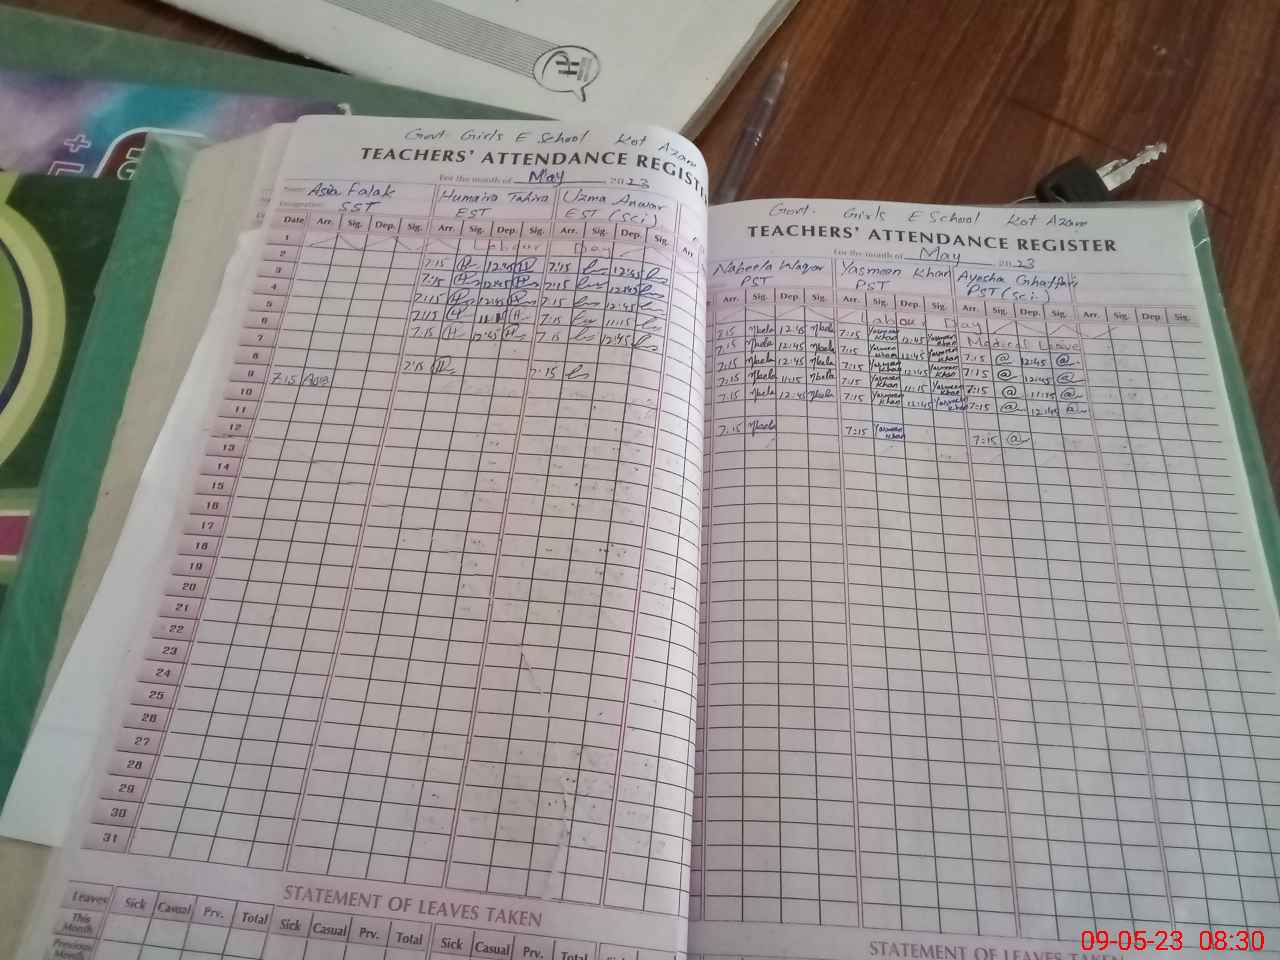 Govt. Girls E School Kot Azam
TEACHERS' ATTENDANCE REGIST
For the month of May 2023
Name Asia Falak Humaira Tahira Uzma Anwar
Designation SST EST EST (Sci)
Date Arr. Sig. Dep. Sig. Arr. Sig. Dep. Sig. Arr. Sig. Dep. Sig. Arr
1 Labour Day
2 7:15 12:45 7:15 12:45
3 7:15 12:45 7:15 12:45
4 7:15 12:45 7:15 12:45
5 7:15 11:15 7:15 11:15
6 7:15 12:45 7:15 12:45
7
8 7:15 7:15
9 7:15 Asia
10
11
12
13
14
15
16
17
18
19
20
21
22
23
24
25
26
27
28
29
30
31
STATEMENT OF LEAVES TAKEN
Leaves Sick Casual Prv. Total Sick Casual Prv. Total Sick Casual Prv. Total
This Month
Previous Month
Govt. Girls E School Kot Azam
TEACHERS' ATTENDANCE REGISTER
For the month of May 2023
Nabeela Waqar Yasmeen Khan Ayesha Ghaffar
PST PST PST (Sci)
Arr. Sig. Dep. Sig. Arr. Sig. Dep. Sig. Arr. Sig. Dep. Sig. Arr. Sig. Dep. Sig.
Labour Day
7:15 Nbeela 12:45 Nbeela 7:15 Yasmeen Khan 12:45 Yasmeen Khan Medical Leave
7:15 Nbeela 12:45 Nbeela 7:15 Yasmeen Khan 12:45 Yasmeen Khan 7:15 @ 12:45 @
7:15 Nbeela 12:45 Nbeela 7:15 Yasmeen Khan 12:45 Yasmeen Khan 7:15 @ 12:45 @
7:15 Nbeela 11:15 Nbeela 7:15 Yasmeen Khan 11:15 Yasmeen Khan 7:15 @ 11:15 @
7:15 Nbeela 12:45 Nbeela 7:15 Yasmeen Khan 12:45 Yasmeen Khan 7:15 @ 12:45 @
7:15 Nbeela 7:15 Yasmeen Khan 7:15 @
STATEMENT OF LEAVES TAKEN
09-05-23 08:30